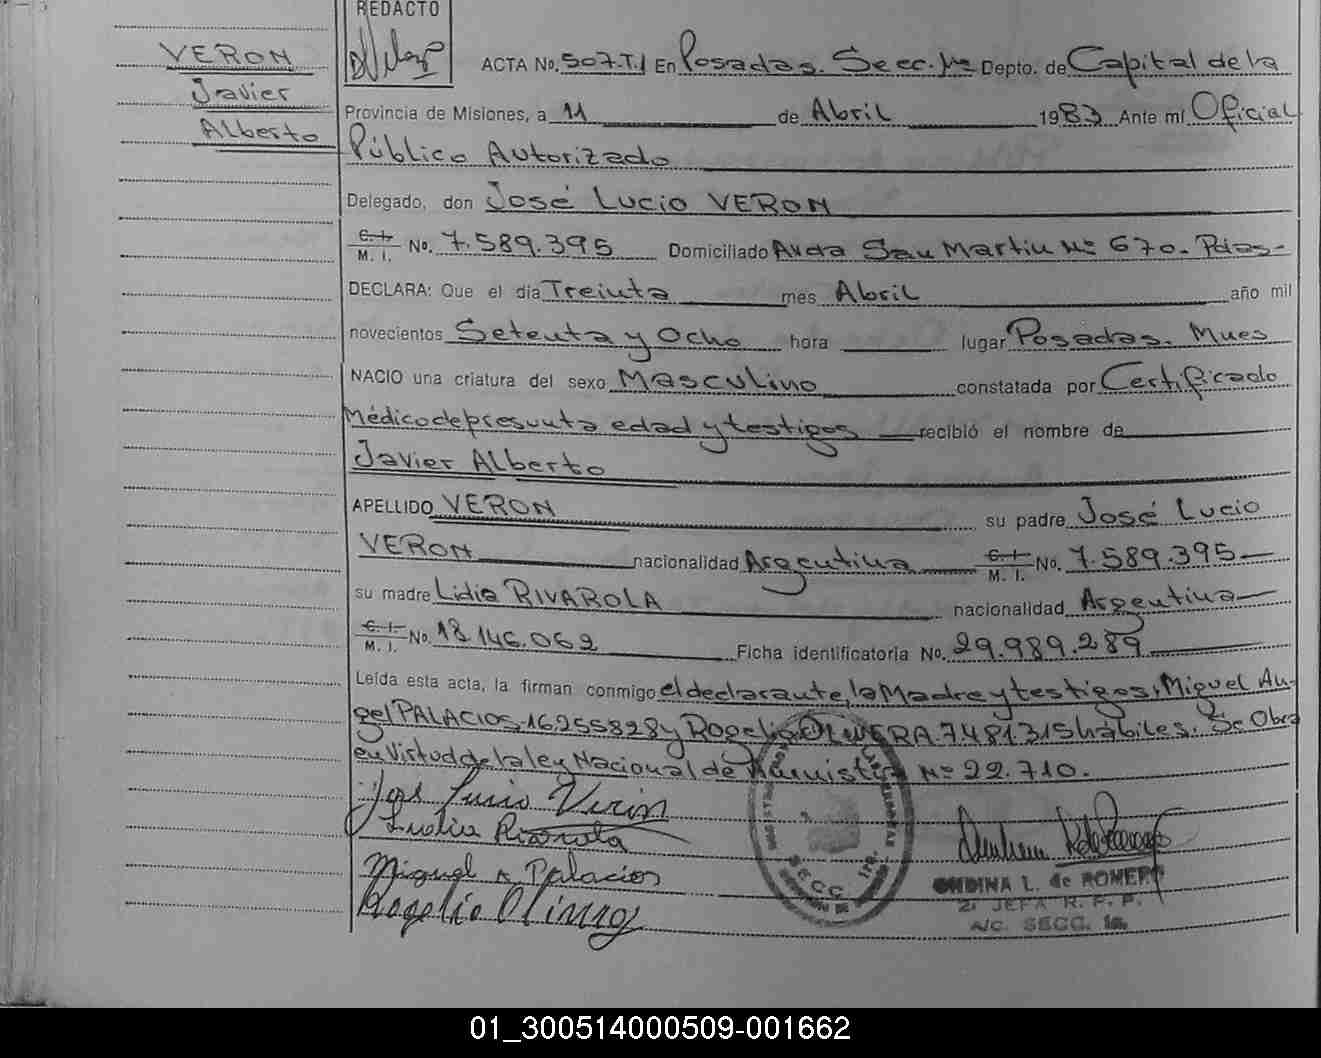 REDACTO
VERON
Javier
Alberto
ACTA No. 507.T.I En Posadas. Secc. 1ra Depto. de Capital de la
Provincia de Misiones, a 11 de Abril 1983 Ante mí Oficial
Público Autorizado
Delegado, don José Lucio VERON
C. I.
M. I. No. 7.589.395 Domiciliado Avda San Martin Nº 670. Pdas-
DECLARA: Que el día Treinta mes Abril año mil
novecientos Setenta y Ocho hora lugar Posadas. Mnes
NACIO una criatura del sexo Masculino constatada por Certificado
Médico de presunta edad y testigos recibió el nombre de
Javier Alberto
APELLIDO VERON su padre José Lucio
VERON nacionalidad Argentina C. I. M. I. No. 7.589.395
su madre Lidia RIVAROLA nacionalidad Argentina
C. I.
M. I. No. 18.146.062 Ficha identificatoria No. 29.989.289
Leída esta acta, la firman conmigo el declarante, la Madre y testigos, Miguel An-
gel PALACIOS-16.255828 y Rogelio OLIVERA.7481315 hábiles. Se Obra
en Virtud de la ley Nacional de Amnistía Nº 22.710.
José Lucio Verón
Lidia Rivarola
Miguel A Palacios
Rogelio
SECC. 1ra.
ONDINA L. de ROMERO
2: JEFA R. P. P.
A/C. SECC. 1a.
01_300514000509-001662